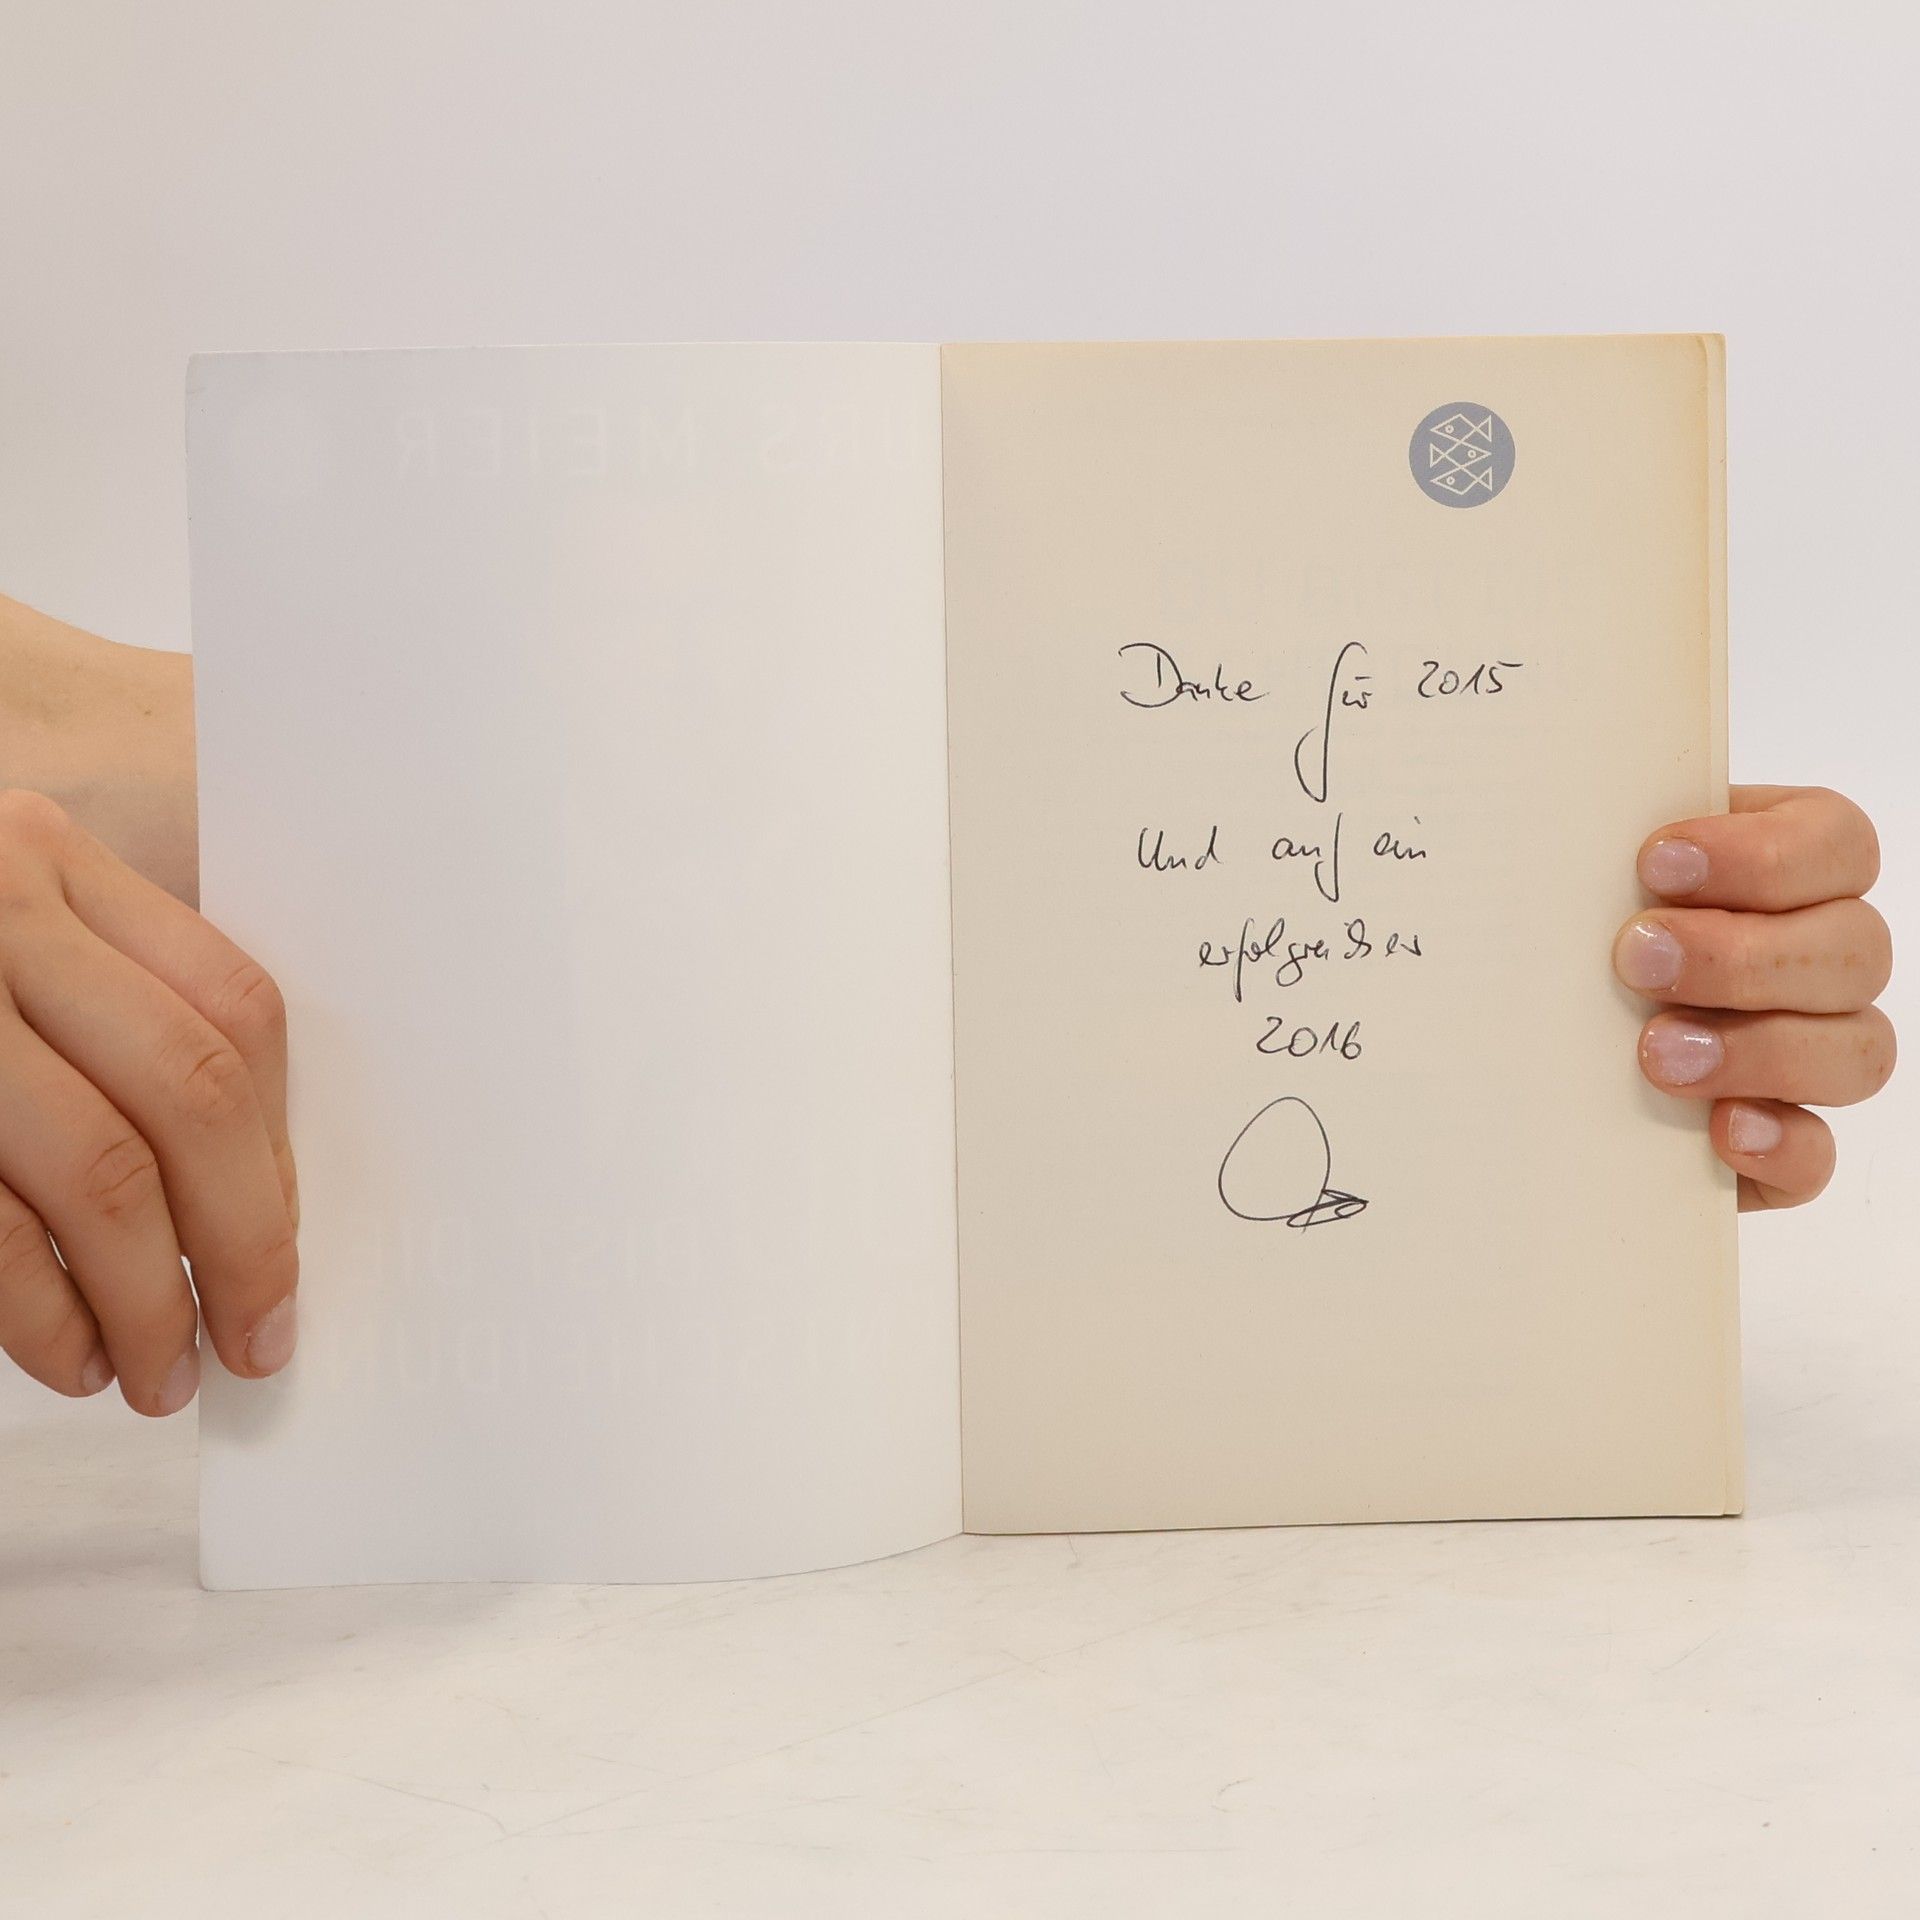 URS MEIER
Danke für 2015
Und auf ein
erfolgreiches
2016